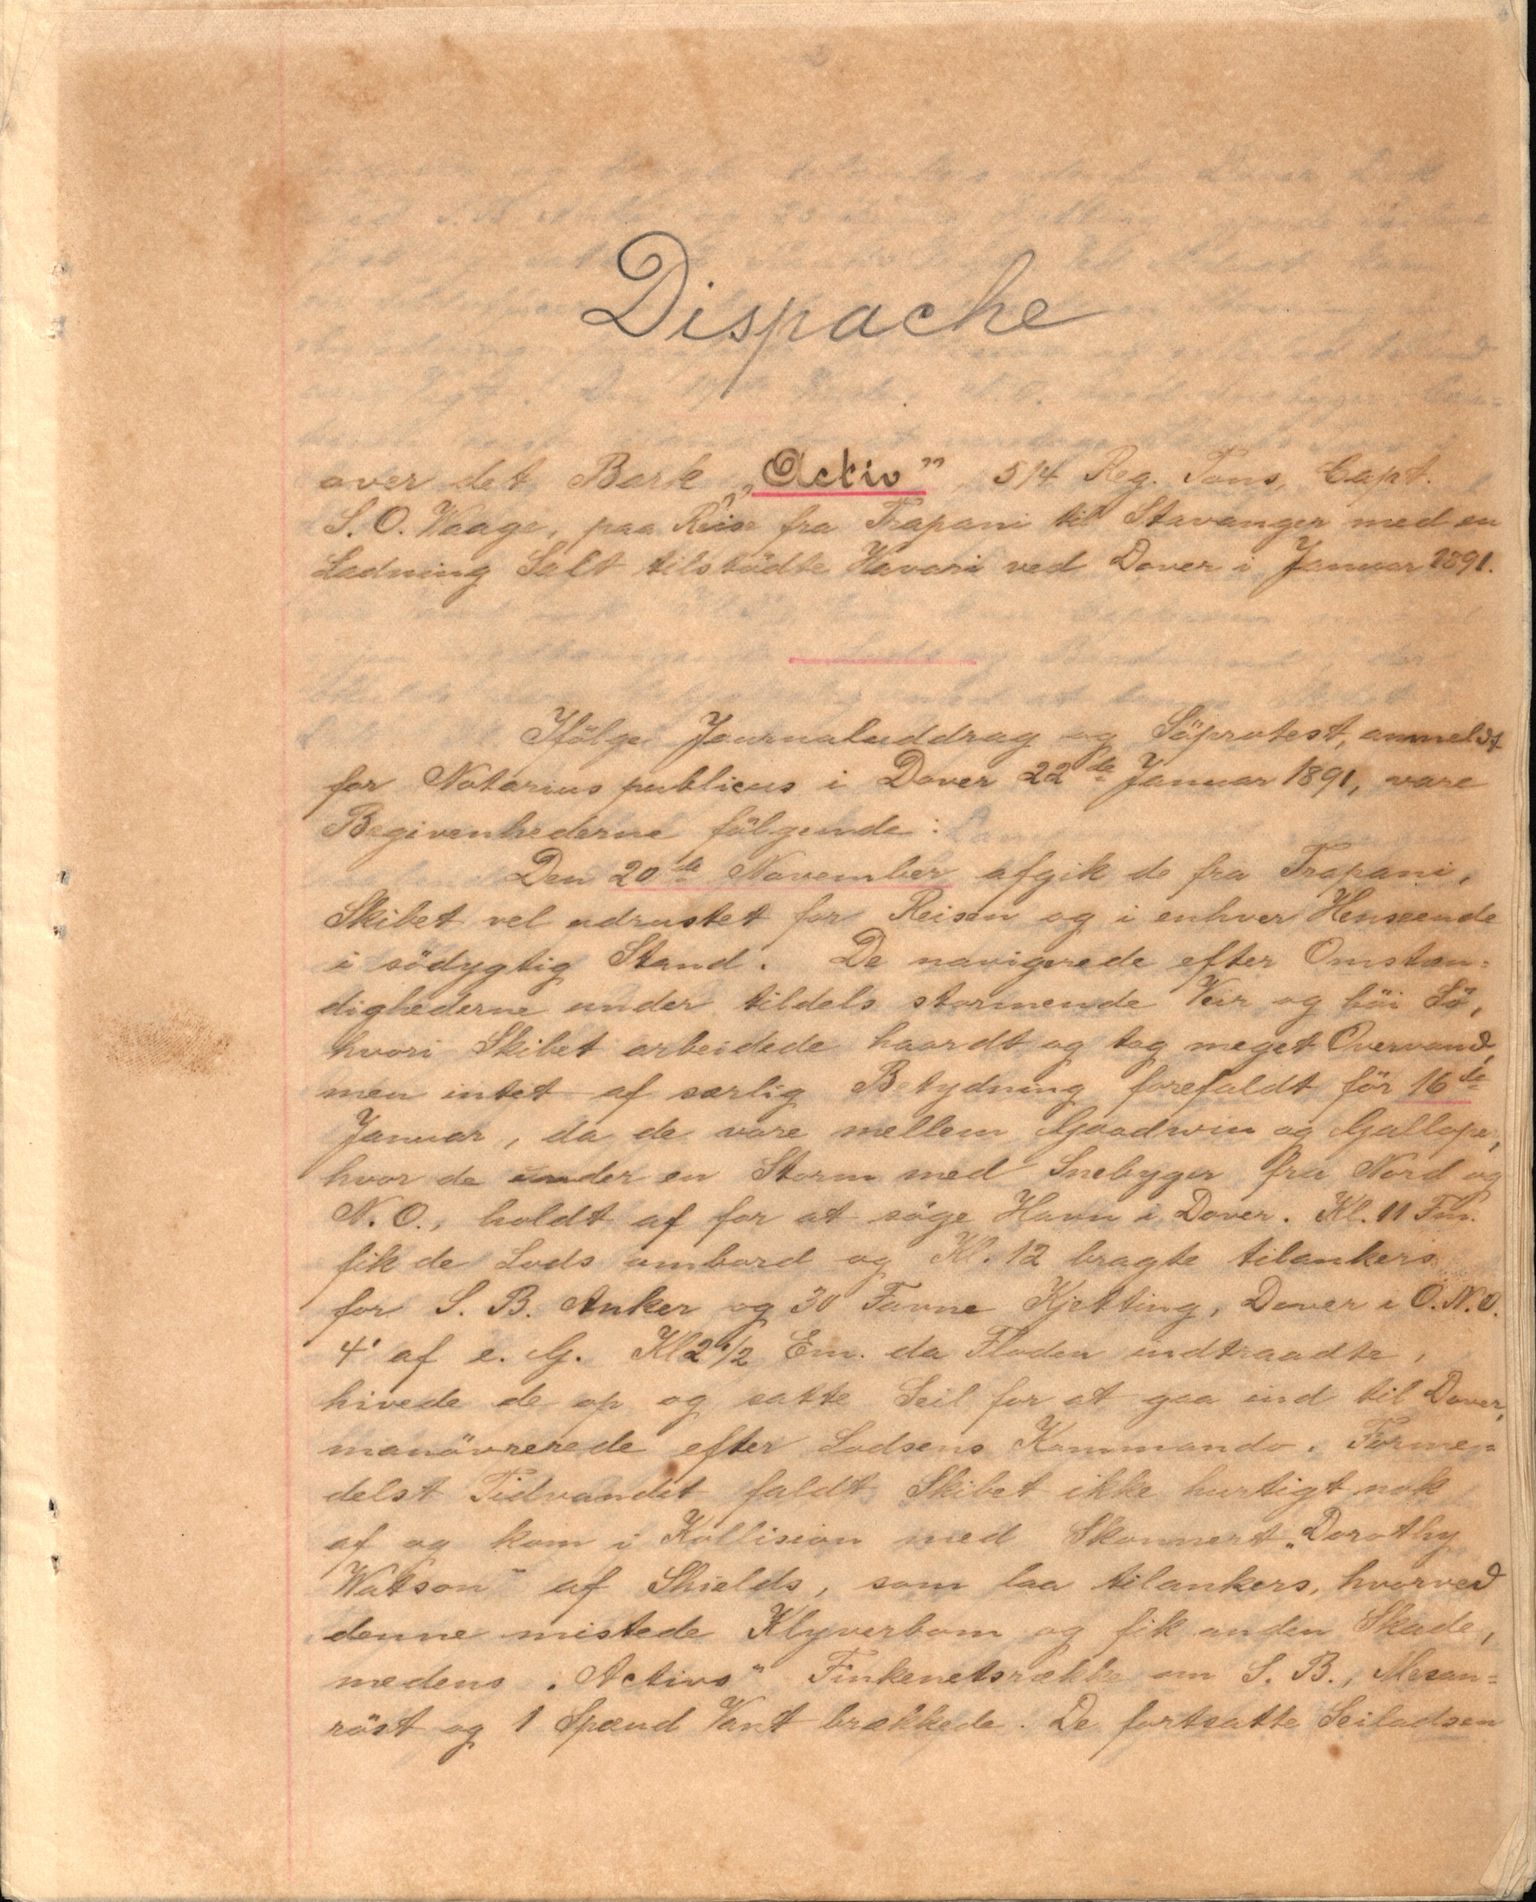 Dispache
over det Bark „Activ”, 514 Reg. Tons, Capt.
S. O. Waage, paa Reise fra Trapani til Stavanger med en
Ladning Salt tilstödte Havari ved Dover i Januar 1891.
Ifölge Journaluddrag og Söprotest, anmeldt
for Notarius publicus i Dover 22de Januar 1891, vare
Begivenhederne fölgende:
Den 20de November afgik de fra Trapani,
Skibet vel udrustet for Reisen og i enhver Henseende
i södygtig Stand. De navigerede efter Omstæn=
dighederne under tildels stormende Veir og höi Sö,
hvori Skibet arbeidede haardt og tog meget Overvand,
men intet af særlig Betydning forefaldt för 16de
Januar, da de vare mellem Goodwin og Gallope,
hvor de under en Storm med Snebyger fra Nord og
N. O., holdt af for at söge Havn i Dover. Kl. 11 Fm.
fik de Lods ombord og Kl. 12 bragte tilankers
for S. B. Anker og 30 Favne Kjetting, Dover i O. N. O.
4' af e. G. Kl 2 1/2 Em. da Floden indtraadte,
hivede de op og satte Seil for at gaa ind til Dover,
manövrerede efter Lodsens Kommando. Forme=
delst Tidvandet faldt Skibet ikke hurtigt nok
af og kom i Kollision med Skonnert „Dorothy
Watson” af Shields, som laa tilankers, hvorved
denne mistede Klyverbom og fik anden Skade,
medens „Activs” Finkenetsrække om S. B., Mesan=
röst og 1 Spænd Vant brækkede. De fortsatte Seiladsen